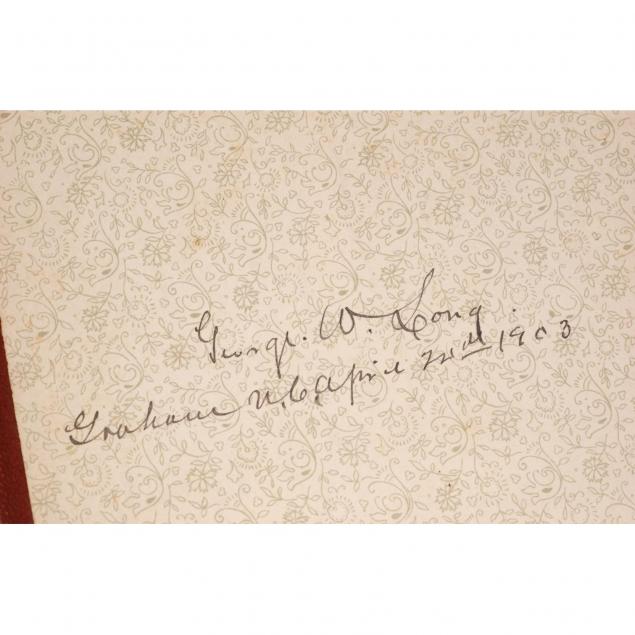 George. W. Long.
Graham N.C. April 22nd 1903